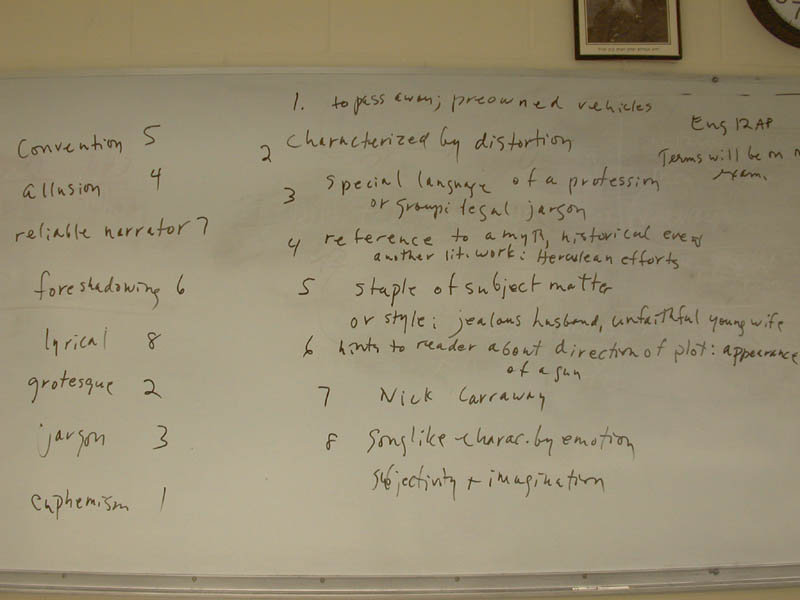 1. to pass away; preowned vehicles
Eng 12 AP
Terms will be on
exam.
2 Characterized by distortion
3 special language of a profession
or group: legal jargon
4 reference to a myth, historical event
another lit. work: Herculean efforts
5 staple of subject matter
or style: jealous husband, unfaithful young wife
6 hints to reader about direction of plot: appearance
of a gun
7 Nick Carraway
8 songlike - charac. by emotion
subjectivity + imagination
Convention 5
allusion 4
reliable narrator 7
foreshadowing 6
lyrical 8
grotesque 2
jargon 3
euphemism 1